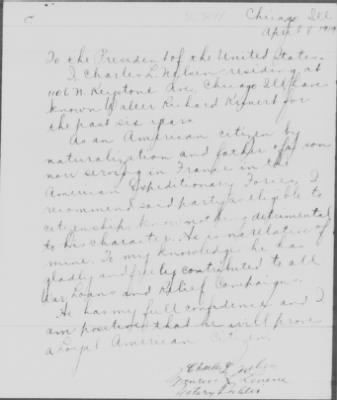 Chicago Ill
Apr
To the President of the United States.
I, Charles L. Nelson residing at
N. Keystone Ave, Chicago Ill have
known Walter Richard for
the past six years.
As an American citizen by
naturalization and father of a son
now serving in France in the
American Expeditionary Forces, I
recommend said party as eligible to
citizenship know nothing detrimental
to his character. He is no relation of
mine. To my knowledge he has
gladly and freely contributed to all
War Loans and Relief Campaigns.
He has my full confidence and I
am positive that he will prove
a Loyal American Citizen.
Charles L. Nelson
Notary Public